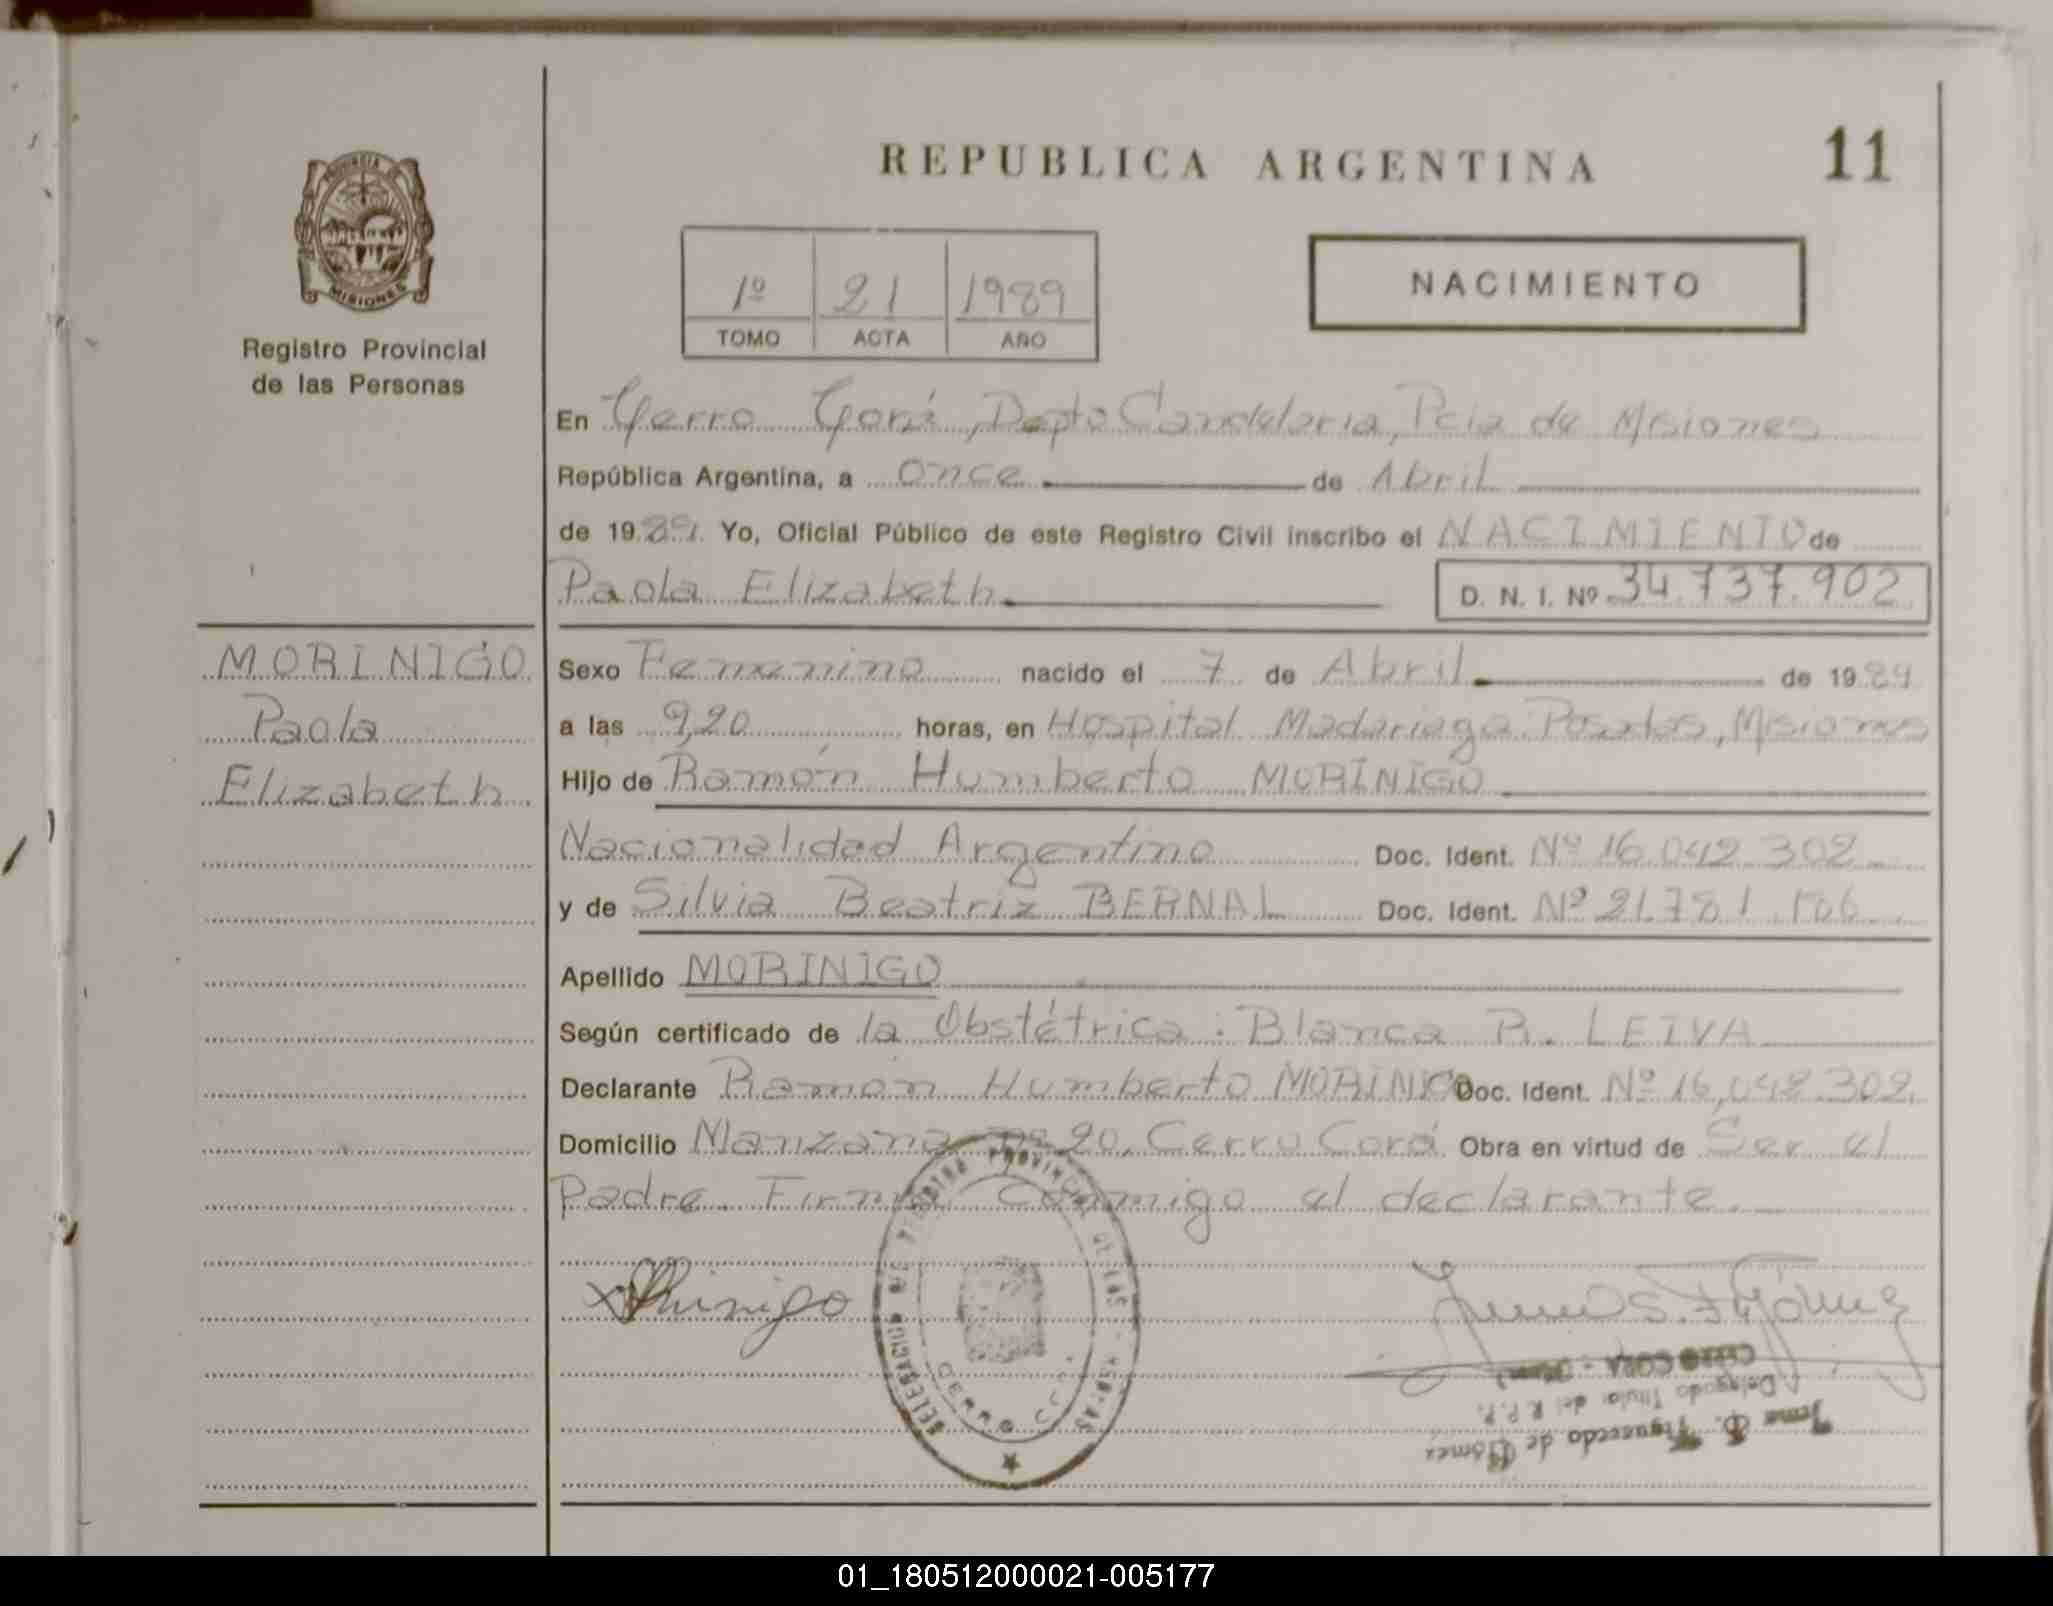 REPUBLICA ARGENTINA
11
PROVINCIA
MISIONES
Registro Provincial
de las Personas
1º 21 1989
TOMO ACTA AÑO
NACIMIENTO
En Cerro Corá, Depto Candelaria, Pcia de Misiones
República Argentina, a once de Abril
de 1989. Yo, Oficial Público de este Registro Civil inscribo el NACIMIENTO de
Paola Elizabeth D. N. I. Nº 34.737.902
MORINIGO
Paola
Elizabeth
Sexo Femenino nacido el 7 de Abril de 1989
a las 9,20 horas, en Hospital Madariaga. Posadas, Misiones
Hijo de Ramón Humberto MORINIGO
Nacionalidad Argentino Doc. Ident. Nº 16.042.302
y de Silvia Beatriz BERNAL Doc. Ident. Nº 21.781.
Apellido MORINIGO
Según certificado de la Obstétrica: Blanca R. LEIVA
Declarante Ramón Humberto MORINIGO Doc. Ident. Nº 16,042.302.
Domicilio Manzana nº 20, Cerro Corá Obra en virtud de Ser el
Padre. Firma Conmigo el declarante.
REGISTRO PROVINCIAL DE LAS PERSONAS
DELEGACION
CERRO CORA
CERRO CORA
Delegada Titular del R. P. P.
Figueredo de Gómez
01_180512000021-005177